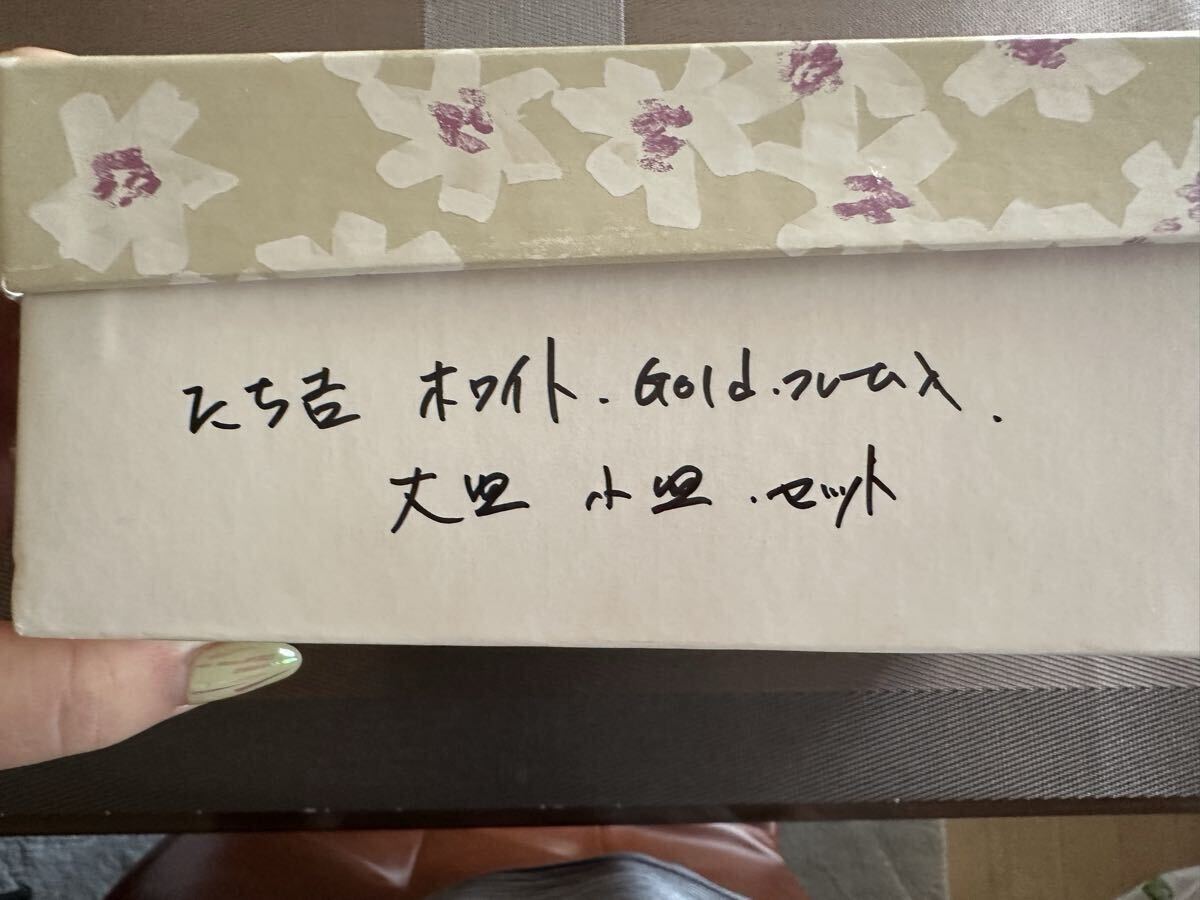 たち吉 ホワイト.Gold.フレーム入.
大皿 小皿.セット